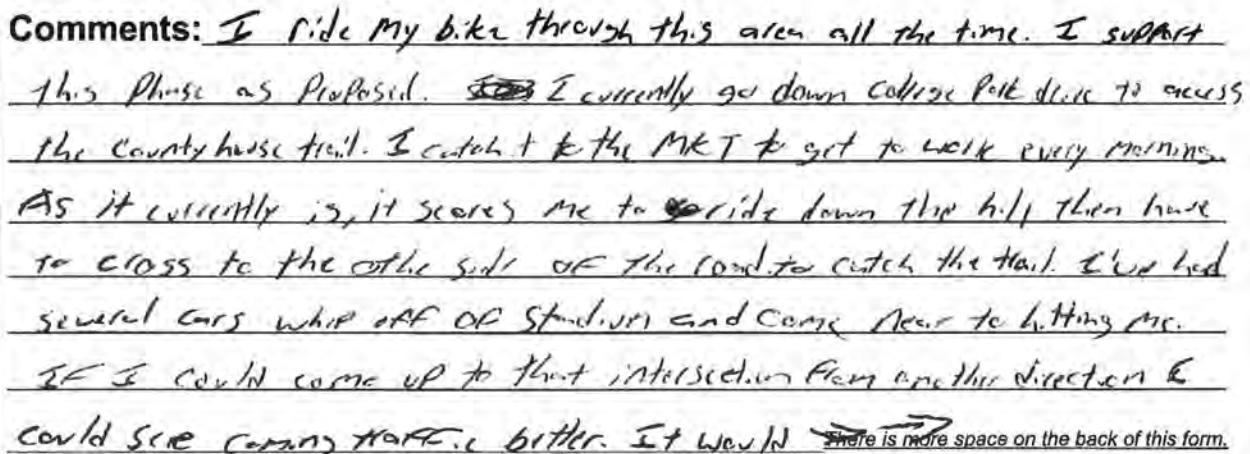 Comments: I ride my bike through this area all the time. I support
this Phase as Proposed. I currently go down College Park drive to access
the County house trail. I catch t to the MKT to get to work every morning.
As it currently is, it scares me to ride down the hill then have
to cross to the othe side of the road to catch the trail. I've had
several cars whip off of Stadium and come near to hitting me.
If I could come up to that intersection from another direction I
could see coming traffic better. It would There is more space on the back of this form.